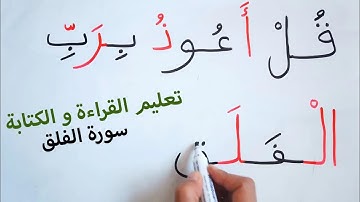 قُلْ أَعُوذُ بِرَبِّ
تعليم القراءة و الكتابة
سورة الفلق
الْفَلَق